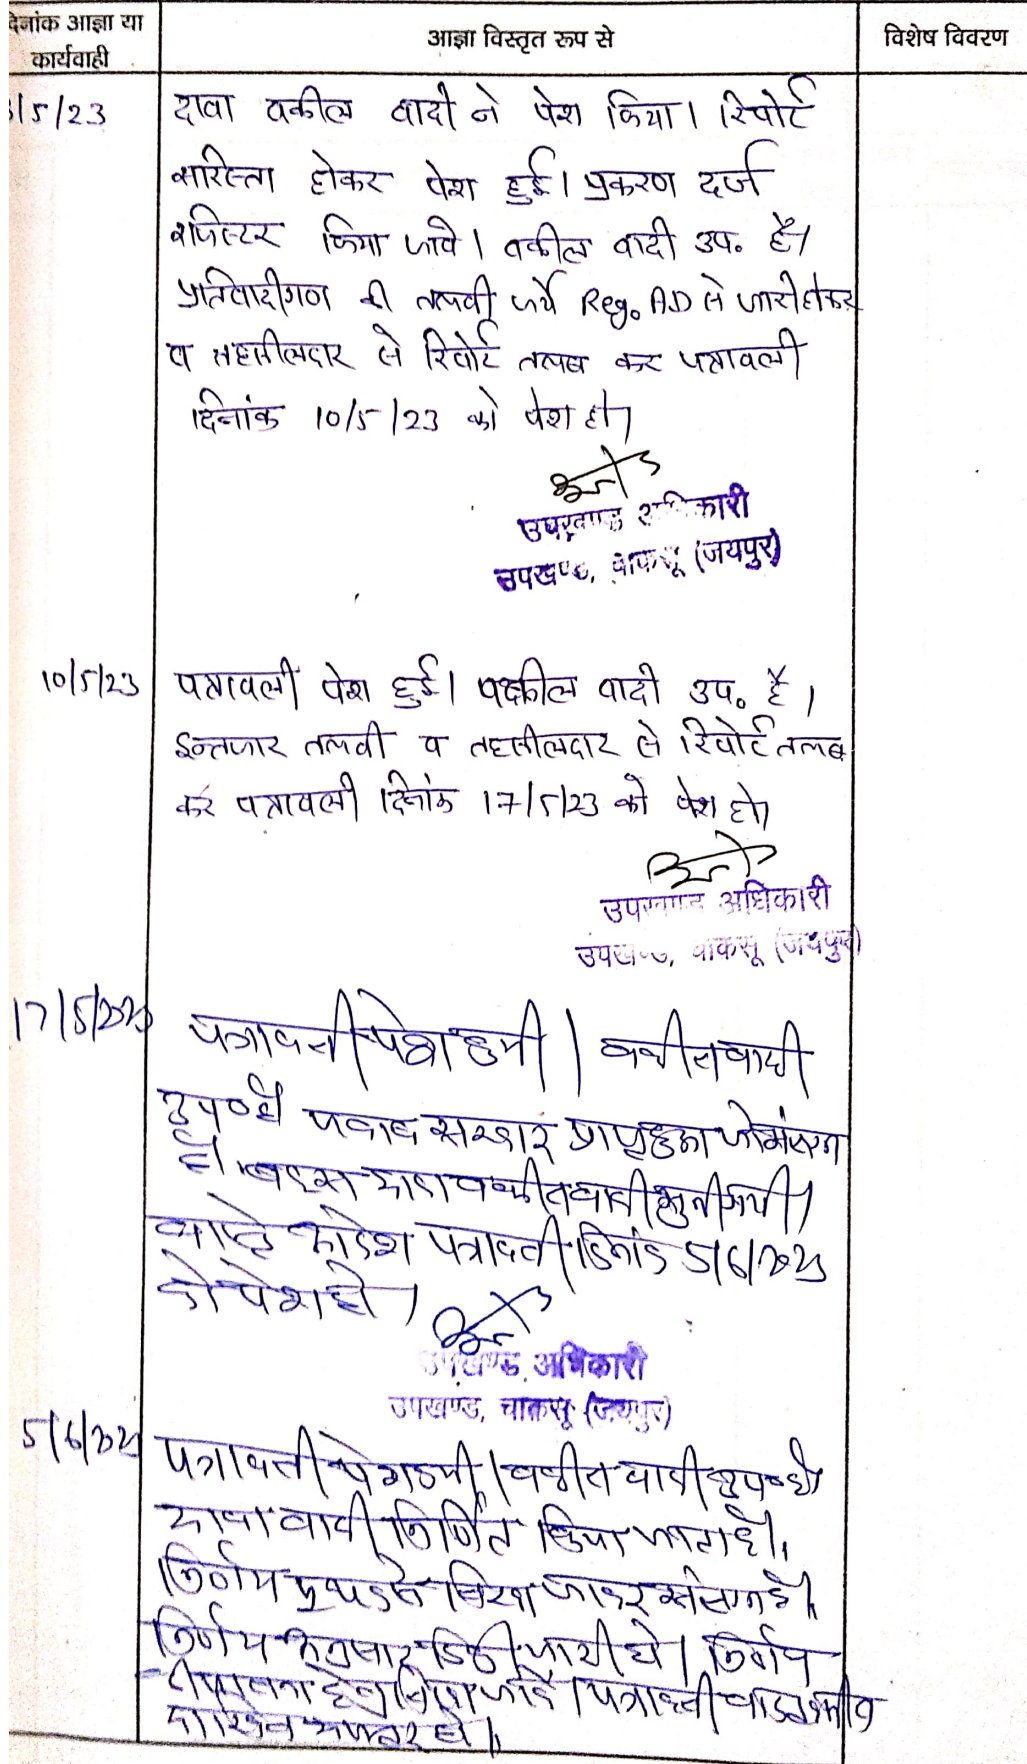 दिनांक आज्ञा या
कार्यवाही
आज्ञा विस्तृत रूप से
विशेष विवरण
/5/23
दावा वकील वादी ने पेश किया। रिपोर्ट
सरिस्ता होकर पेश हुई। प्रकरण दर्ज
रजिस्टर किया जावे। वकील वादी उप. है।
प्रतिवादीगण की तलबी जर्ये Reg. AD से जारी होकर
व तहसीलदार से रिपोर्ट तलब कर पत्रावली
दिनांक 10/5/23 को पेश हो।
उपखण्ड अधिकारी
उपखण्ड, चाकसू (जयपुर)
10/5/23
पत्रावली पेश हुई। वकील वादी उप. है।
इन्तजार तलबी व तहसीलदार से रिपोर्ट तलब
कर पत्रावली दिनांक 17/5/23 को पेश हो।
उपखण्ड अधिकारी
उपखण्ड, चाकसू (जयपुर)
17/5/2023
पत्रावली पेश हुयी। वकील वादी
उप० है सरकार प्राप्त हुआ जो संलग्न
है। बहस वकील वादी सुनी गयी।
वास्ते आदेश पत्रावली दिनांक 5/6/2023
को पेश हो।
उपखण्ड अधिकारी
उपखण्ड, चाकसू (जयपुर)
5/6/2023
पत्रावली पेश हुयी। वकील वादी उप० है।
वादी निर्णित किया जाता है।
निर्णय पृथक से लिखा जाकर संलग्न है।
निर्णय अनुसार डिक्री जारी हो। निर्णय
हेतु लिखा जावे। पत्रावली बाद तकमील
दाखिल दफ्तर हो।